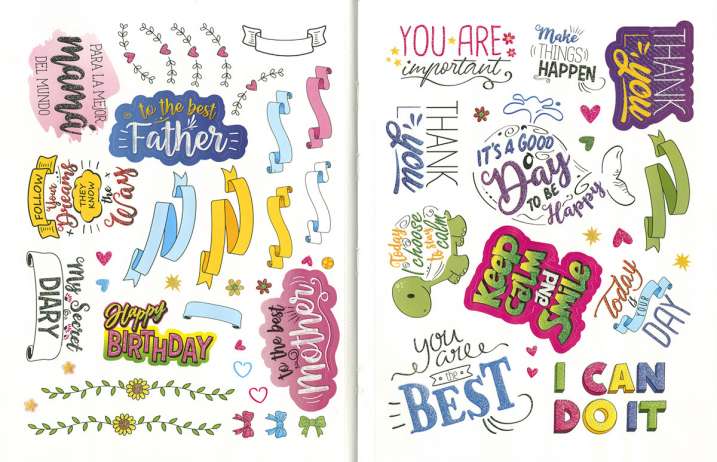 PARA LA MEJOR
mamá
DEL MUNDO
to the best
Father
FOLLOW
Your
Dreams
THEY
KNOW
the
Way
My Secret
DIARY
Happy
BIRTHDAY
to the best
Mother
YOU ARE
important
Make
THINGS
HAPPEN
THANK
you
THANK
you
IT'S A GOOD
Day
TO BE
Happy
Today
I choose
to stay
calm
Keep
CALM
AND
Smile
Today
is
YOUR
DAY
you
are
the
BEST
I CAN
DO IT